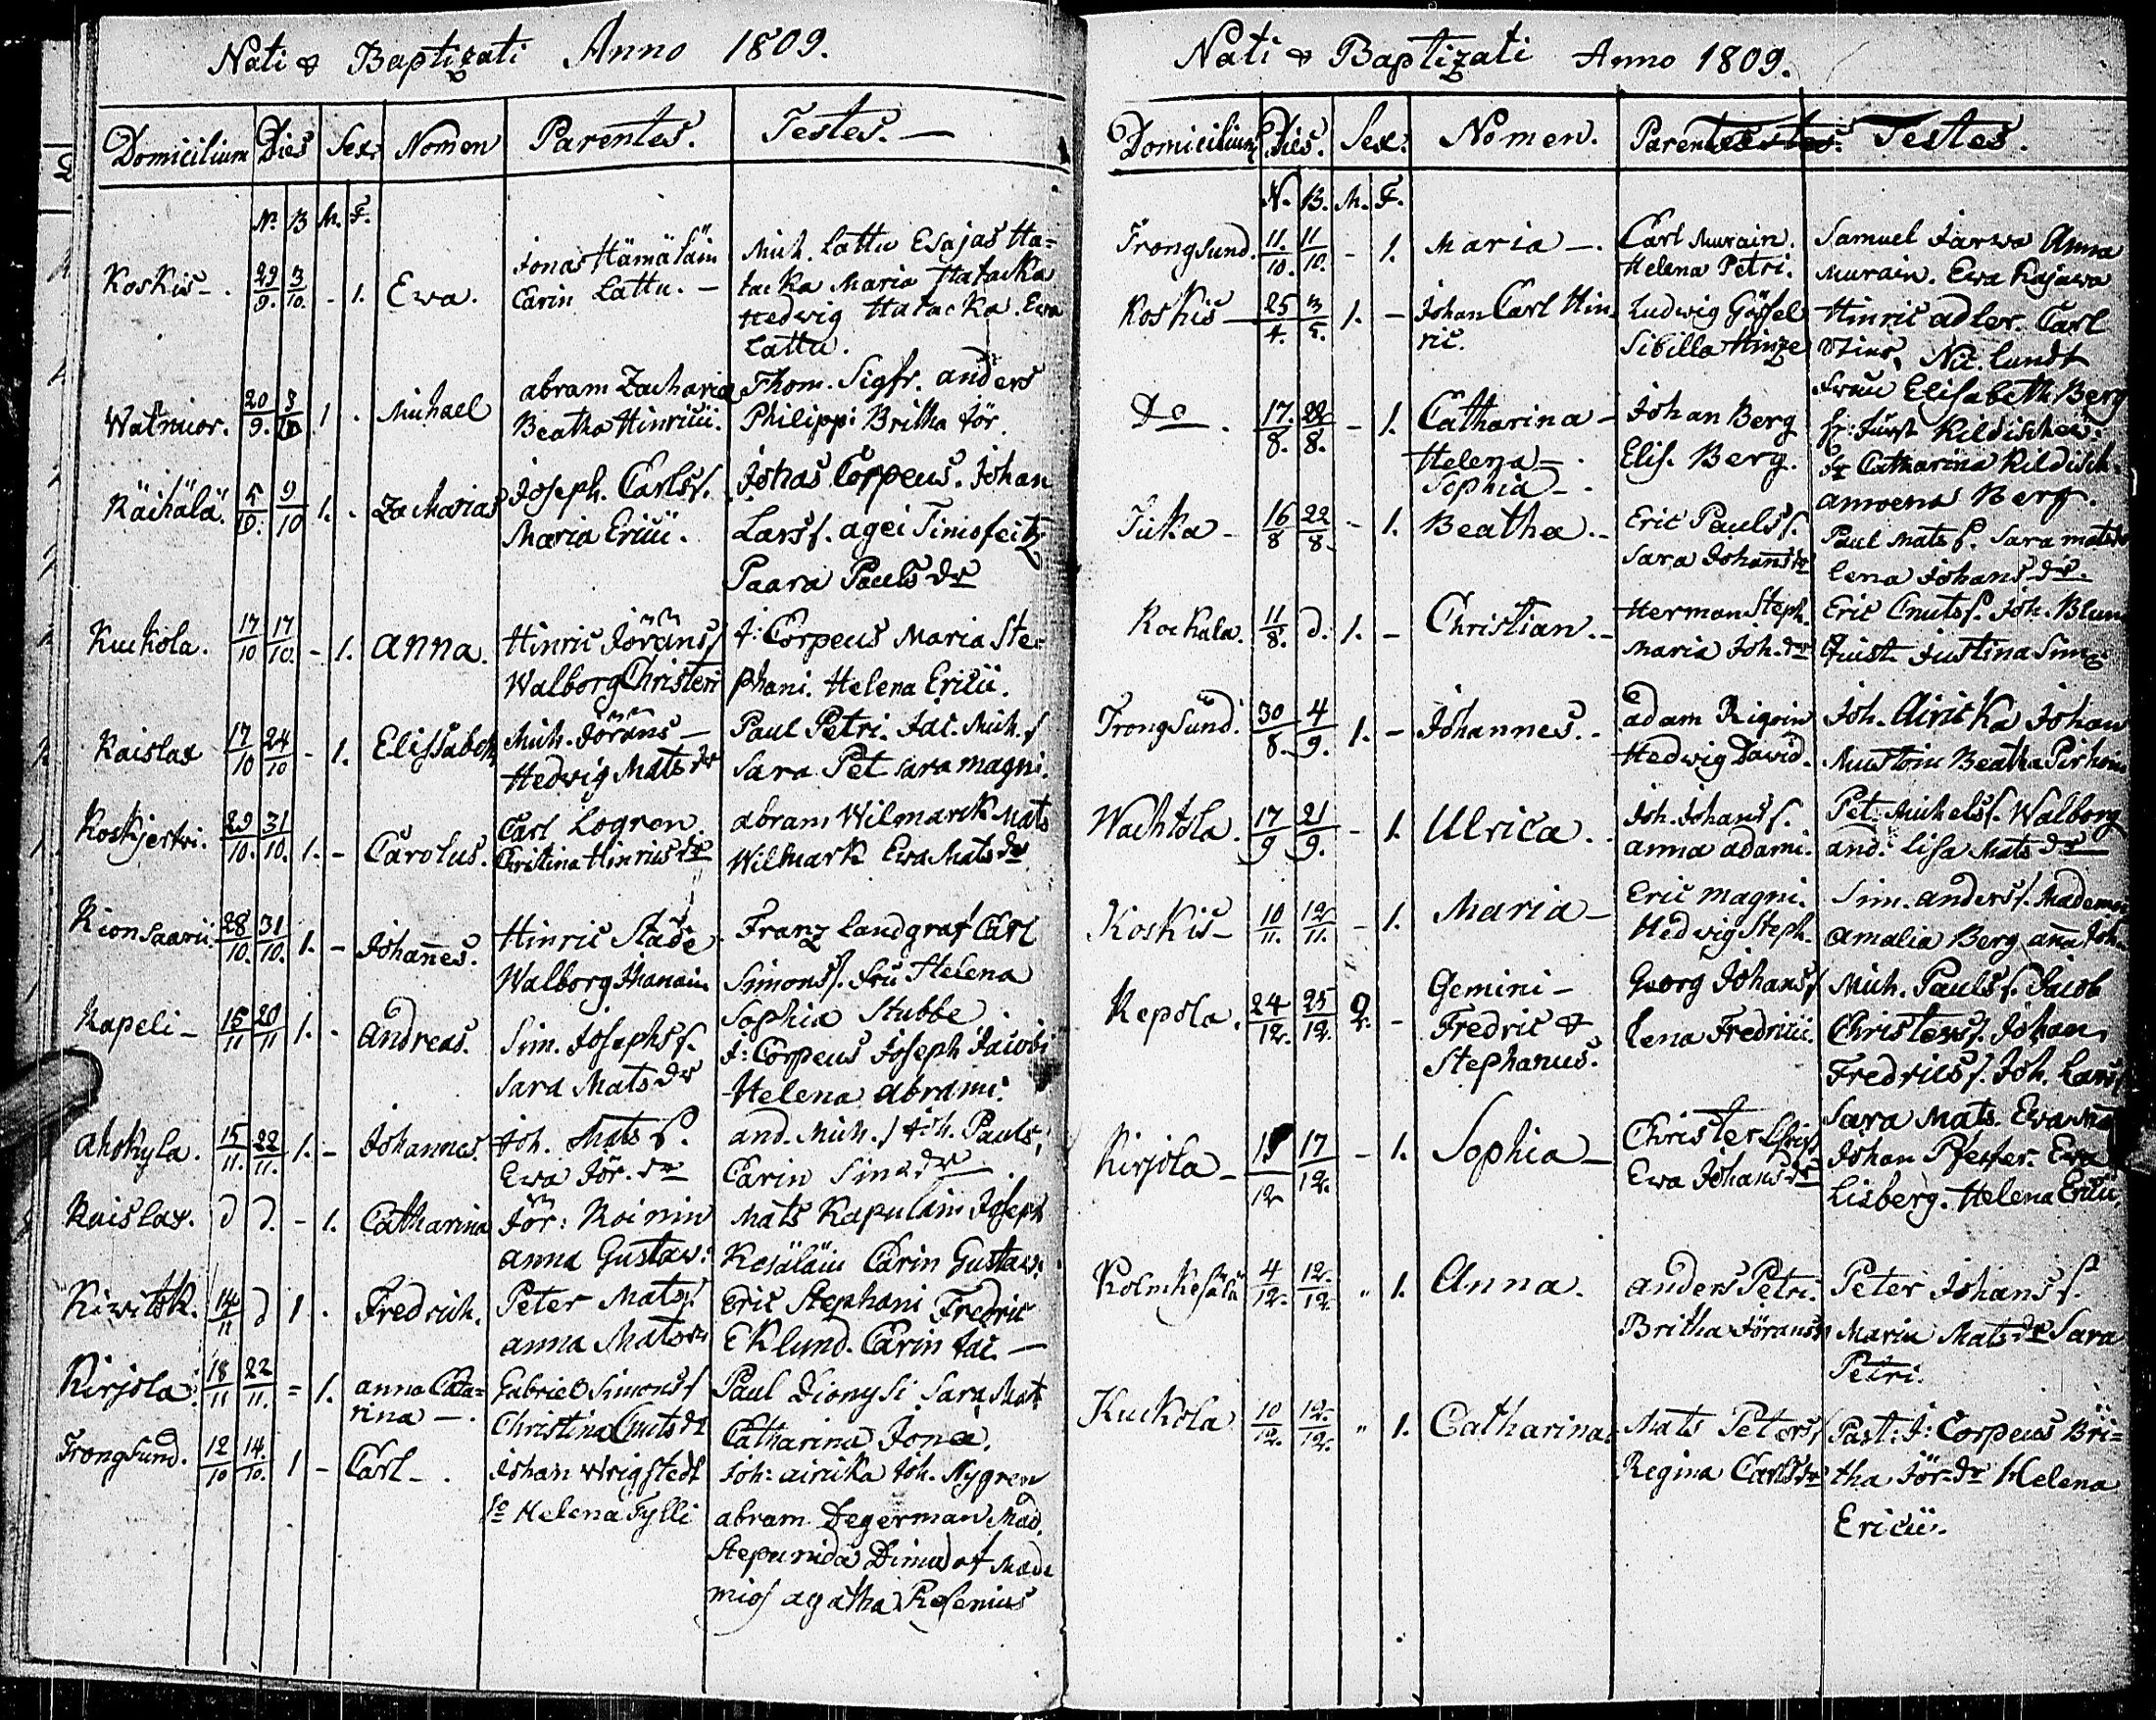 Nati & Baptizati Anno 1809.
Domicilium Dies Sex. Nomen Parentes. Testes. —
N. B M. F.
Koskis - . 29/9. 3/10. - 1. Ewa. Jonas Hämäläin Mich. Lattu Esajas Ha=
Carin Lattu. — tacka Maria Hatacka
Hedwig Hatacka. Ewa
Lattu.
Watnuor. 20/9. 3/10 1 . Michael abram Zacharia Thom. Sigfr. anders
Beatha Hinricii. Philippi Britha Jör.
Käihälä. 5/10. 9/10 1. . Zacharias Joseph. Carlss. Johas Corpeus. Johan
Maria Ericii. Larss. agei Timofeitz
Paara Pauls dr
Kuckola. 17/10 17/10. - 1. anna. Hinric Jöranss J: Corpeus Maria Ste=
Walborg Christeri phani. Helena Ericii.
Kaislax 17/10 24/10 - 1. Elissabeth Mich. Jörans — Paul Petri. Jac. Mich. s
Hedwig Mats dr Sara Pet sara magni.
Koskjertri. 29/10. 31/10. 1. - Carolus. Carl Logren abram Wilmarck Mats
Christina Hinrics dr Wilmark Ewa Mats dr
Kionsaarii 28/10. 31/10. 1. - Johannes. Hinric Stade Franz Landgraf Carl
Walborg Manain Simonss. Fru Helena
Sophia Stubbe
Kapeli - 15/11 20/11 1. - Andreas. Sim. Josephs s. J: Corpeus Joseph Jacobi
Sara Mats dr Helena abrami.
ahokyla. 15/11. 22/11. 1. - Johannes. Joh. Mats s. and. Mich. s Joh. Pauls s
Ewa Jör. dr Carin Sims dr
Kaislax. d d. - 1. Catharina Jör: Koinin Mats Kapulain Joseph
anna Gustav: Kesäläin Carin Gustav:
Kiwitsk. 14/11 d 1 . Fredrich. Peter Matss Eric Stephani Fredric
anna Mats dr Eklund. Carin Jac. —
Kirjola. 18/11 22/11. = 1. anna Cata= Gabriel Simons s Paul Dionysi Sara Mat
rina —. Christina Cnuts dr Catharina Jonæ.
Trongsund. 12/10 14/10. 1 - Carl - . Johan Wrigstedt Joh: airicka Joh. Nygren
Helena Tylli abram Degerman Mad.
Stepanida Dimidof Made
mios agatha Resenius
Nati & Baptizati Anno 1809.
Domicilium Dies. Sex. Nomen. Parentes Testes.
N. B. M. F.
Trongsund. 11/10. 11/10. - 1. Maria —. Carl Murain. Samuel Jarwa Anna
Helena Petri. Murain. Ewa Kajawa
Koskis — 25/4. 3/5. 1. - Johan Carl Hin= Ludwig Gössel Hinric adler. Carl
ric. Sibilla Hinze Nic. Lundt
Do . 17./8. 22/8. - 1. Catharina - Johan Berg Frau Elisabeth Berg
Helena - . Elis. Berg. fr: Fürst Kildischew.
Sophia - . Fr Catharina Kildisch.
amoena Berg.
Tuka - 16/8 22/8. - 1. Beatha. - Eric Pauls s. Paul Mats s. Sara mats dr
Sara Johans dr Lena Johans dr.
Kockala. 11/8. d. 1. - Christian. - Herman Steph. Eric Cnuts s. Joh. Blum
Maria Joh. dr Quist Justina Sim:
Trongsund. 30/8. 4/9. 1. - Johannes. - adam Rigoin Joh. Airicka Johan
Hedwig David. Mustoin Beatha Pirhoin
Wachtola. 17/9 21/9. - 1. Ulrica. . Joh. Johans s. Pet: Michels s. Walborg
anna adami. and: Lisa Mats dr
Koskis - 10/11. 12/11. - 1. Maria - Eric magni. Sim. anders s. Mademoi
Hedwig Steph. Amalia Berg ana Joh.
Kepola. 24/12. 25/12. 2. - Gemini - Georg Johans s Mich. Pauls s. Jacob
Fredric & Lena Fredricii. Christers s. Johan
Stephanus. Fredrics s. Joh. Lars s
Sara Mats. Ewa Ma
Kirjola - 15/12 17/12. - 1. Sophia - Christer Ewa Johans dr Johan Pfeifer. Ewa
Lisberg. Helena Ericii
Kolmkesälä 4/12. 12./12. " 1. Anna. anders Petri. Peter Johans s.
Britha Jörans dr Maria Mats dr Sara
Petri.
Kuckola 10/12. 12./12. " 1. Catharina. Mats Peters s Past: J: Corpeus Bri=
Regina Carls dr tha Jör dr Helena
Ericii.